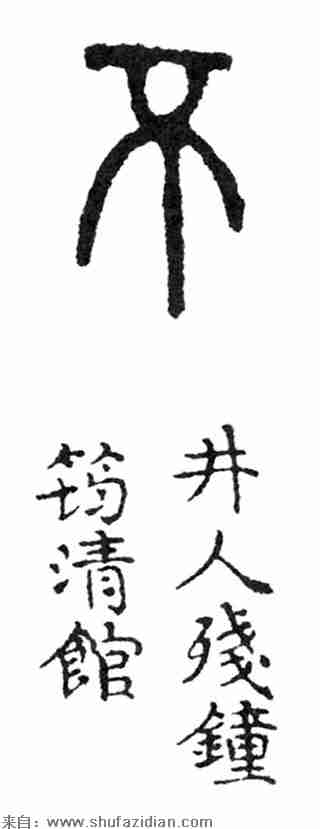 不
井人殘鐘
筠清館
来自：www.shufazidian.com